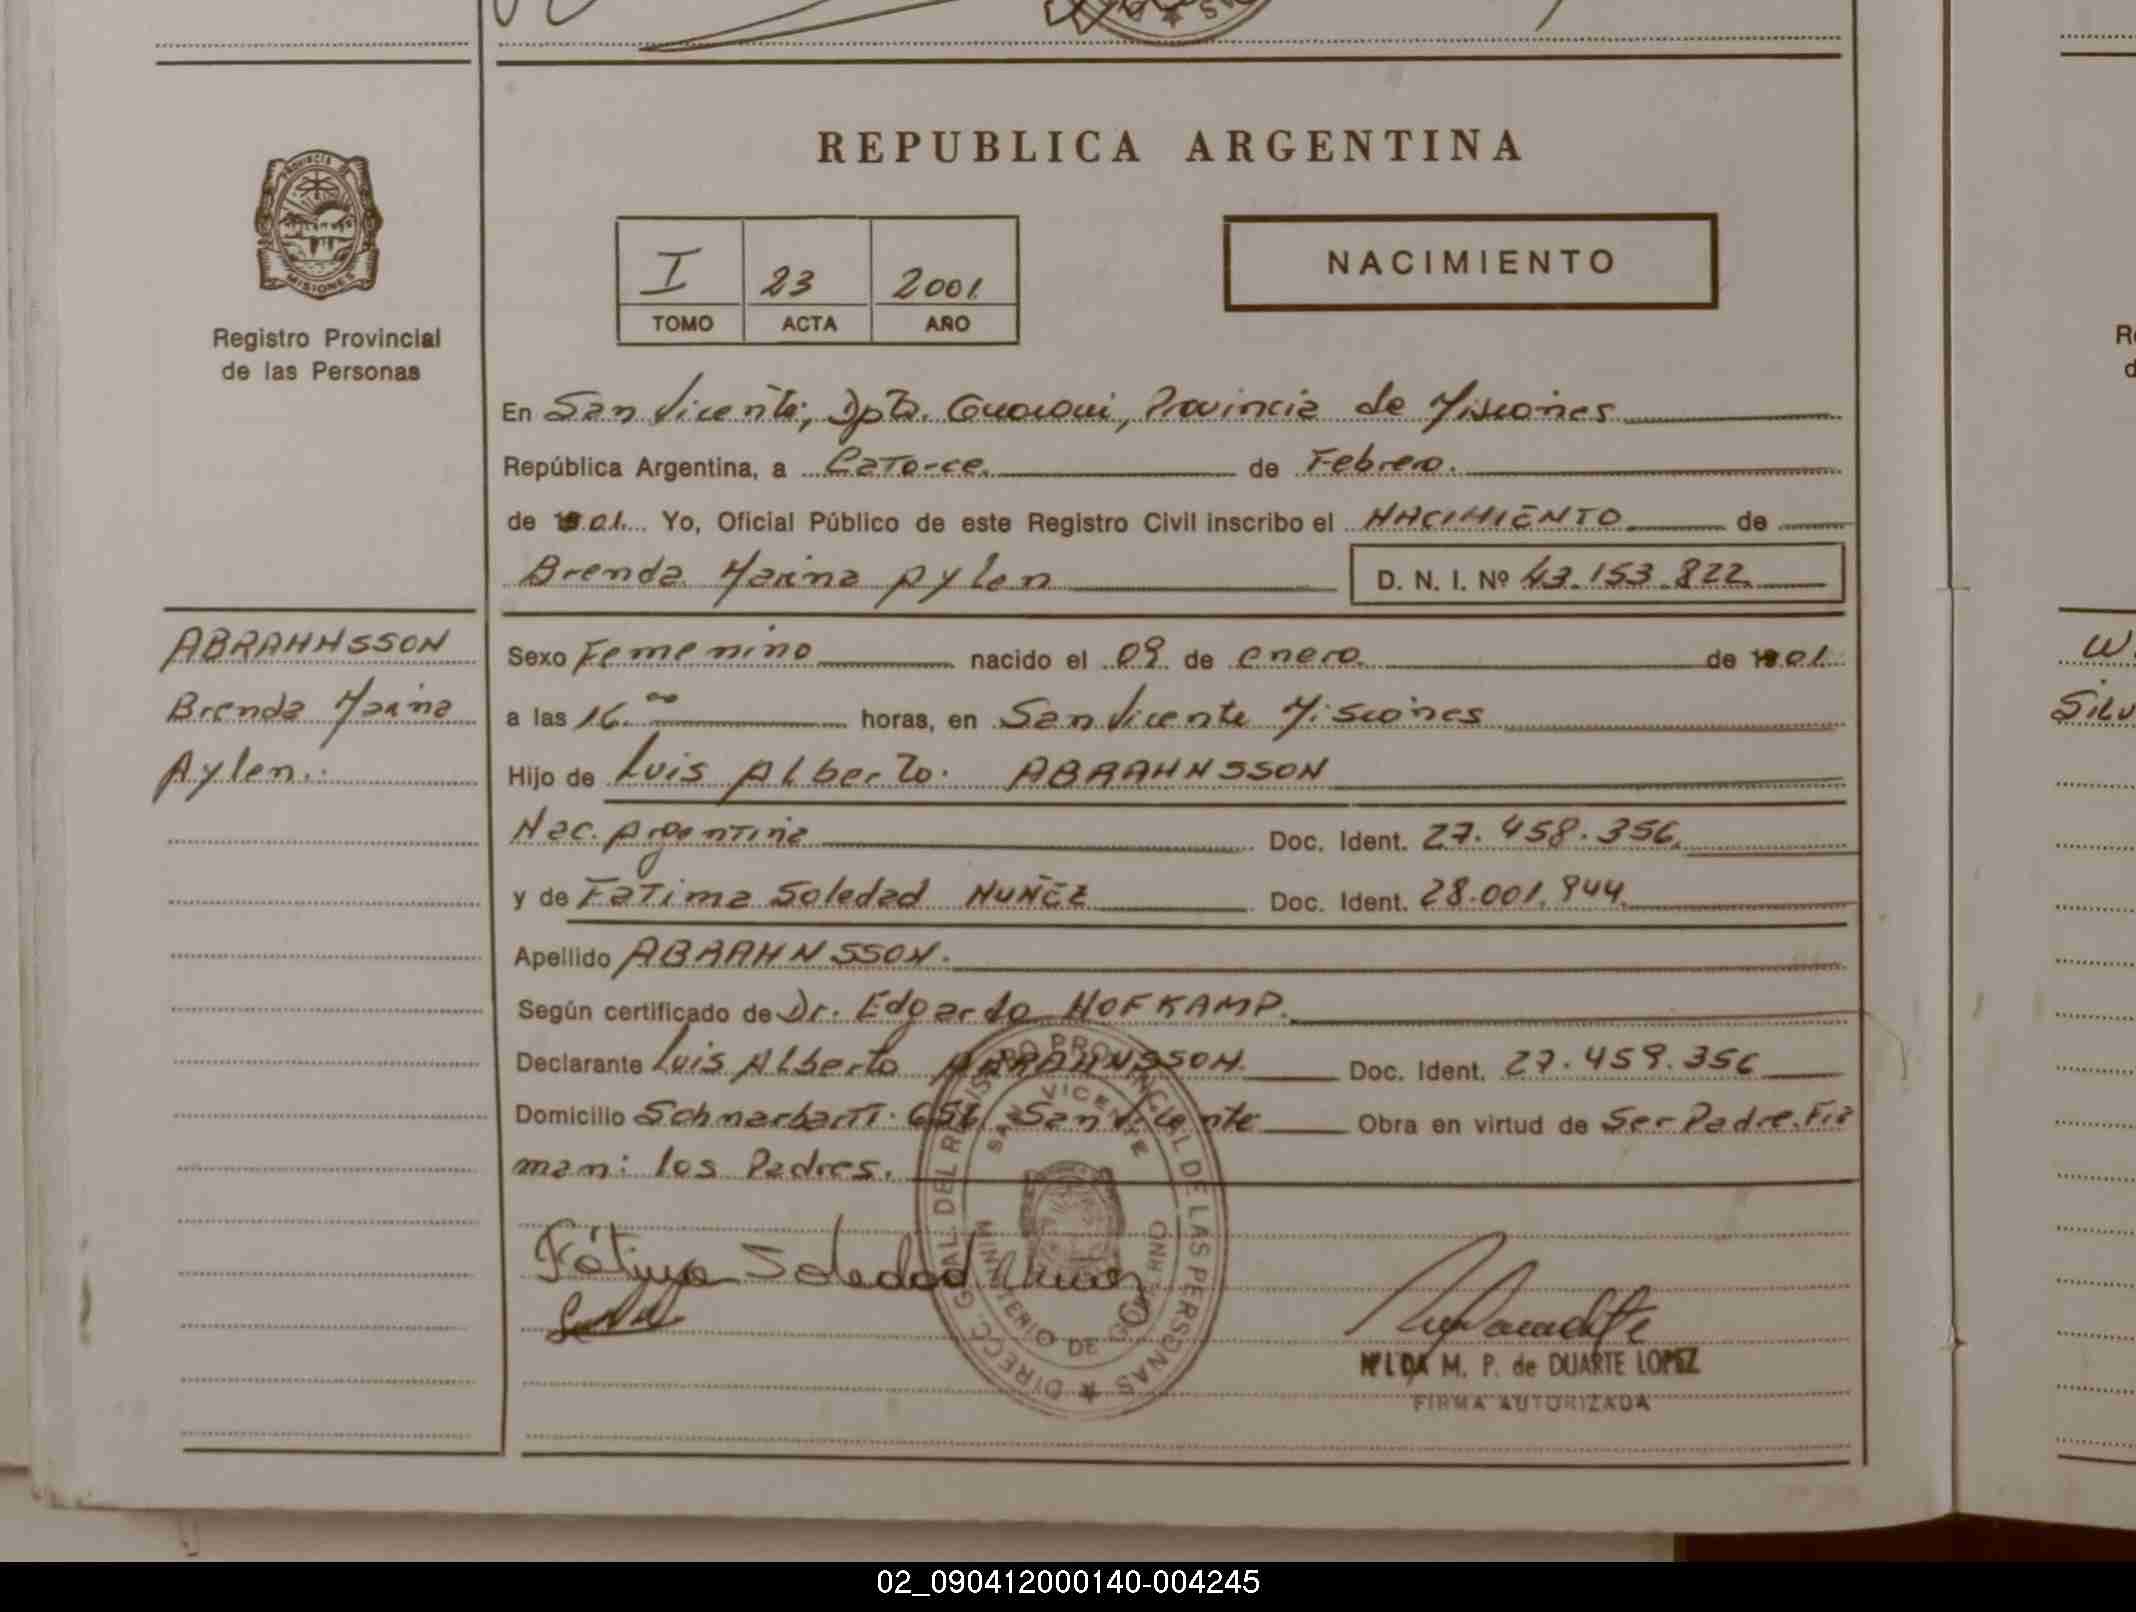 REPUBLICA ARGENTINA
PROVINCIA DE
MISIONES
Registro Provincial
de las Personas
I 23 2001
TOMO ACTA AÑO
NACIMIENTO
En San Vicente, Dpto. Guaraní, Provincia de Misiones
República Argentina, a Catorce. de Febrero.
de 01. Yo, Oficial Público de este Registro Civil inscribo el NACIMIENTO de
Brenda Marina Aylen D. N. I. Nº 43.153.822
ABRAHNSSON
Brenda Marina
Aylen.
Sexo Femenino nacido el 09 de enero de 01
a las 16.00 horas, en San Vicente Misiones
Hijo de Luis Alberto. ABRAHNSSON
Nac. Argentina Doc. Ident. 27.458.356.
y de Fatima Soledad NUÑEZ Doc. Ident. 28.001.944.
Apellido ABRAHNSSON.
Según certificado de Dr. Edgardo HOFKAMP.
Declarante Luis Alberto ABRAHNSSON. Doc. Ident. 27.459.356
Domicilio 656 San Vicente Obra en virtud de Ser Padre. Fir
man: los Padres.
Fátima Soledad Nuñez
DIRECC. GRAL. DEL REGISTRO PROVINCIAL DE LAS PERSONAS
SAN VICENTE
MINISTERIO DE GOBIERNO
M. P. de DUARTE LOPEZ
FIRMA AUTORIZADA
Silv
02_090412000140-004245